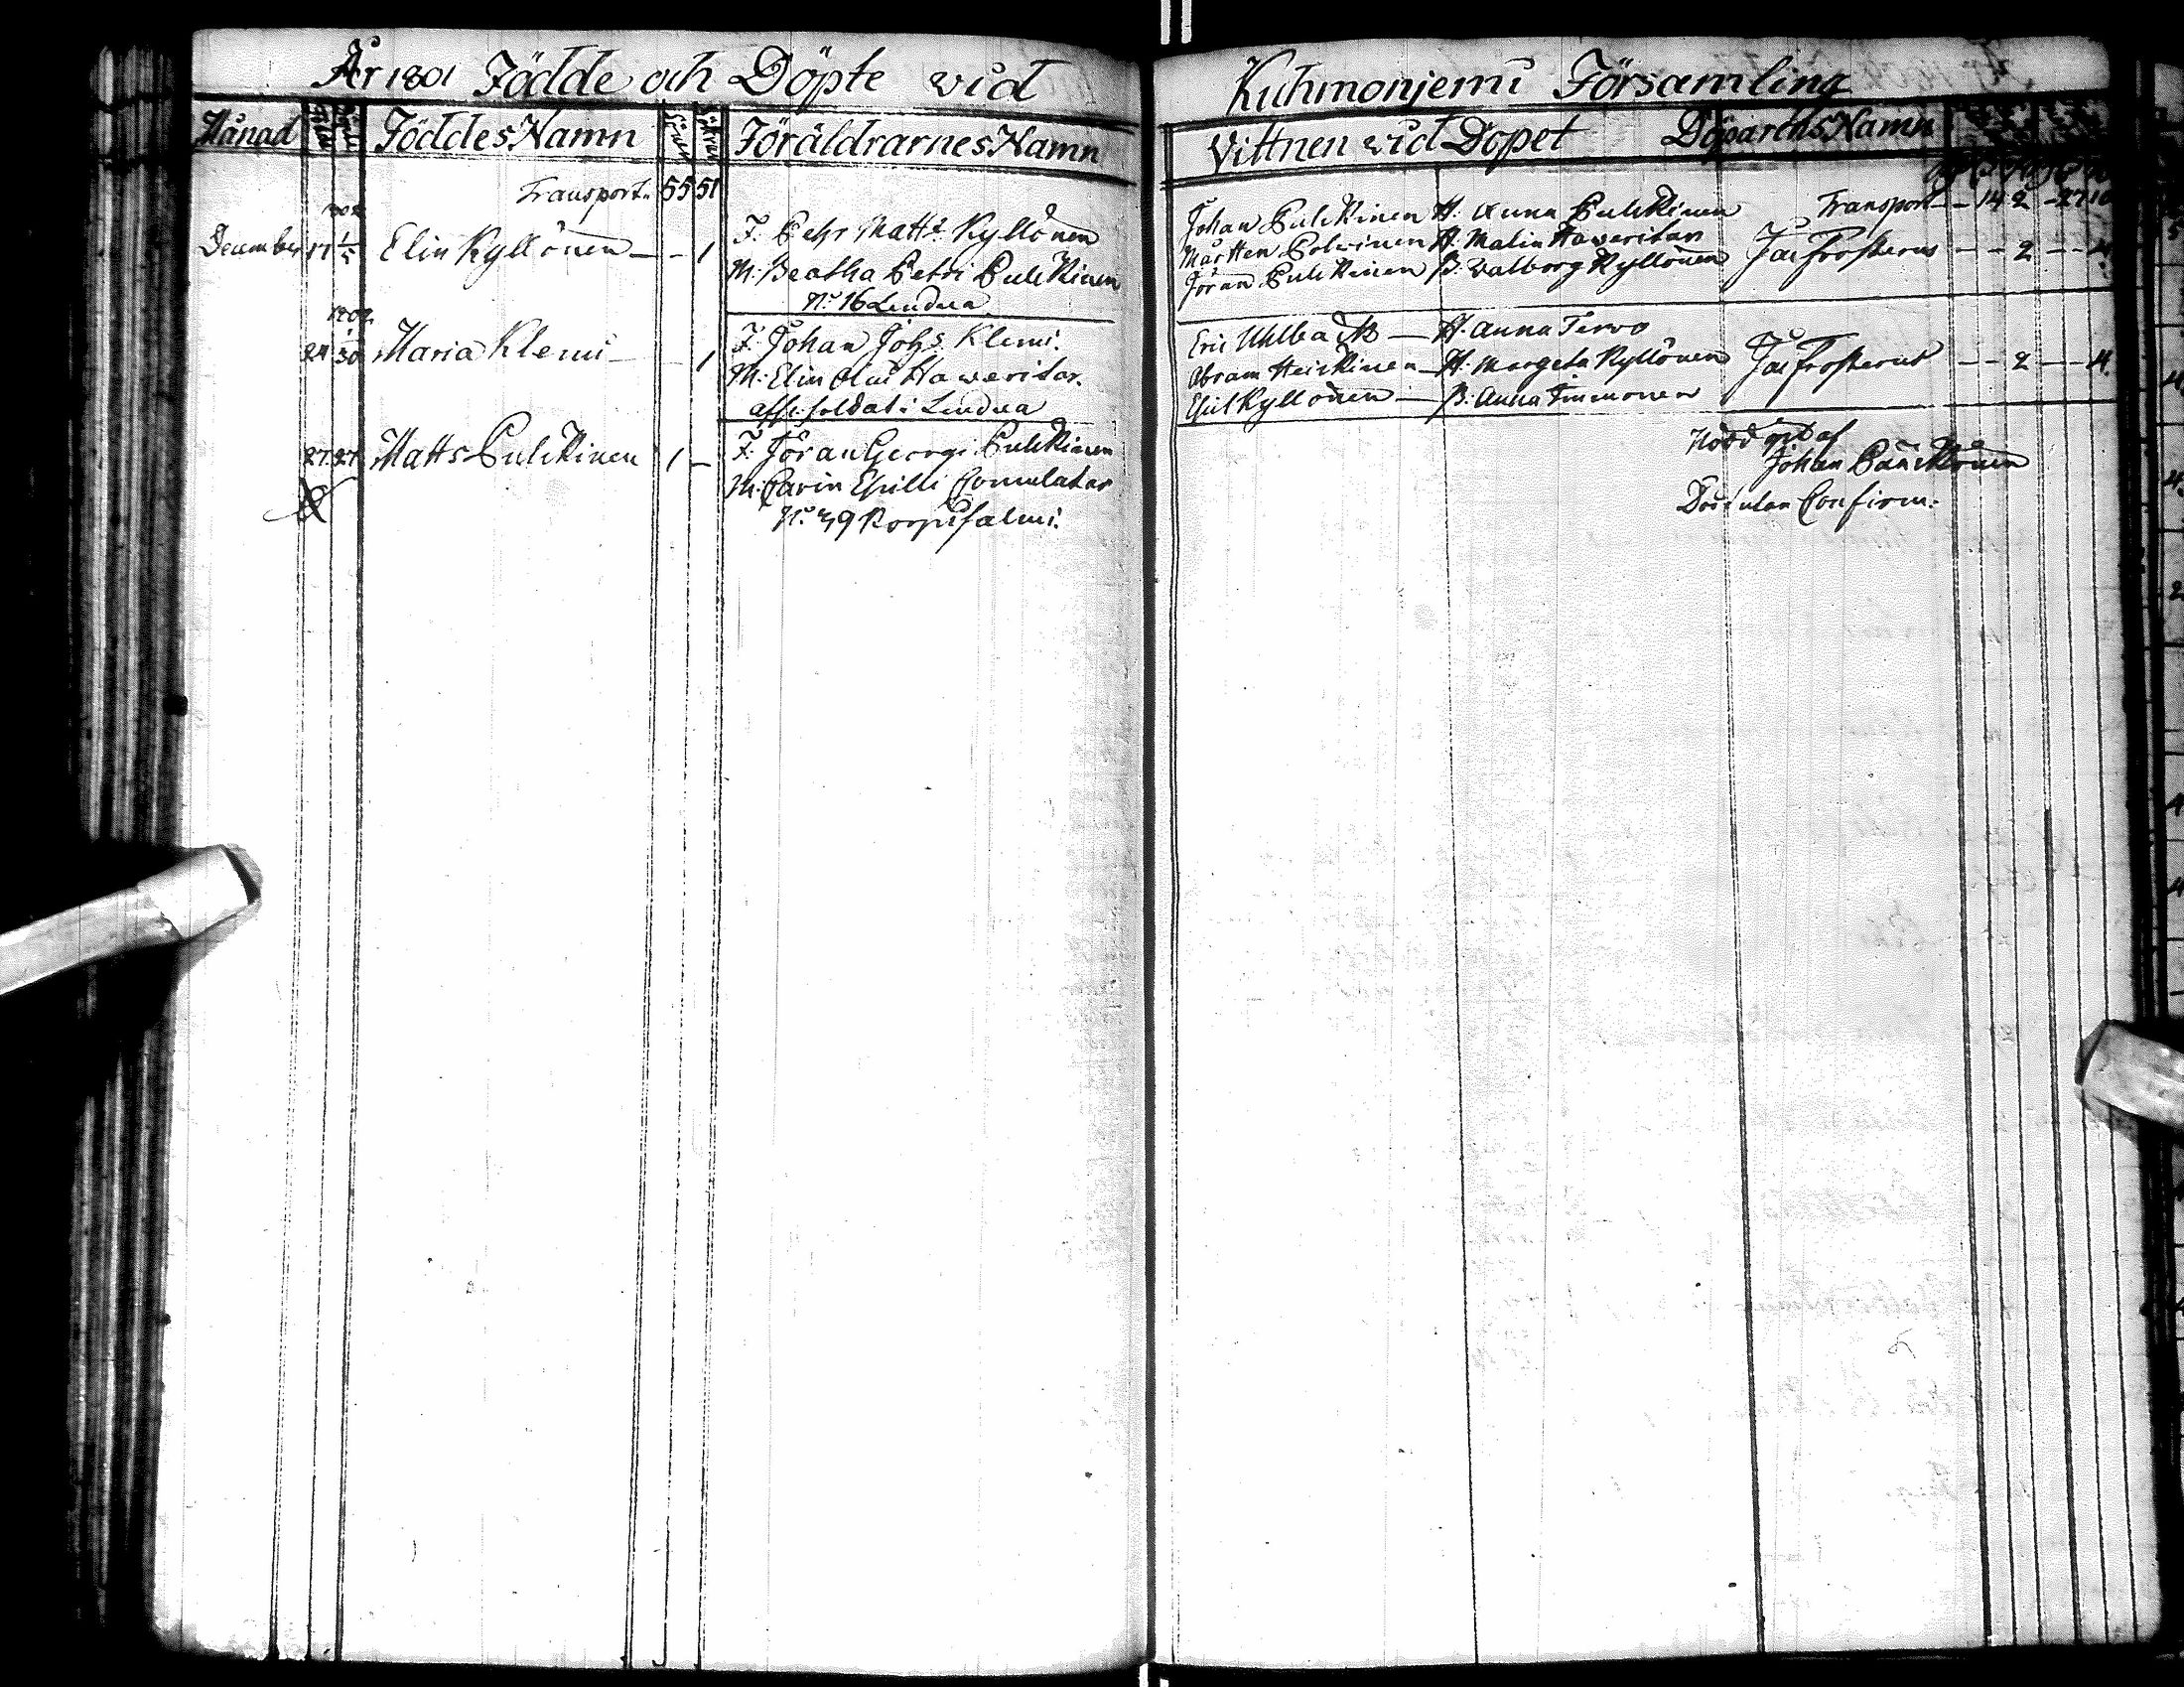 År 1801 Födde och Döpte vid Kuhmonjemi Församling
Månad Föddes Namn Föräldrarnes Namn Vittnen vid Dopet Döparens Namn
Transport 55 51 Transport 14 2
December 17 1/5 Elin Kyllönen 1
1802
F. Pehr Matts Kyllönen
M. Beatha Petri Pulkkinen
N:o 16 Lendua
Johan Pulkkinen H. Anna Pulkkinen
Mårtten Polvinen H. Malin Haveritar
Jöran Pulkkinen P. Walborg Kyllönen
Jac Frosterus 2 4
1802
24 Maria Klemi 1
F. Johan Johs Klemi
M. Elin Olai Haveritar
Lendua
Eric Uhlback H. Anna Tervo
Abram Heickinen H. Margeta Kyllönen
Esuil Kyllönen P. Anna Timmonen
Jac Frosterus 2 4
27 27 Matts Pulkkinen 1
F. Jöran Georgi Pulkkinen
M. Carin
N:o 39 Korpisalmi
Nöddöpt af
Johan
Confirm.